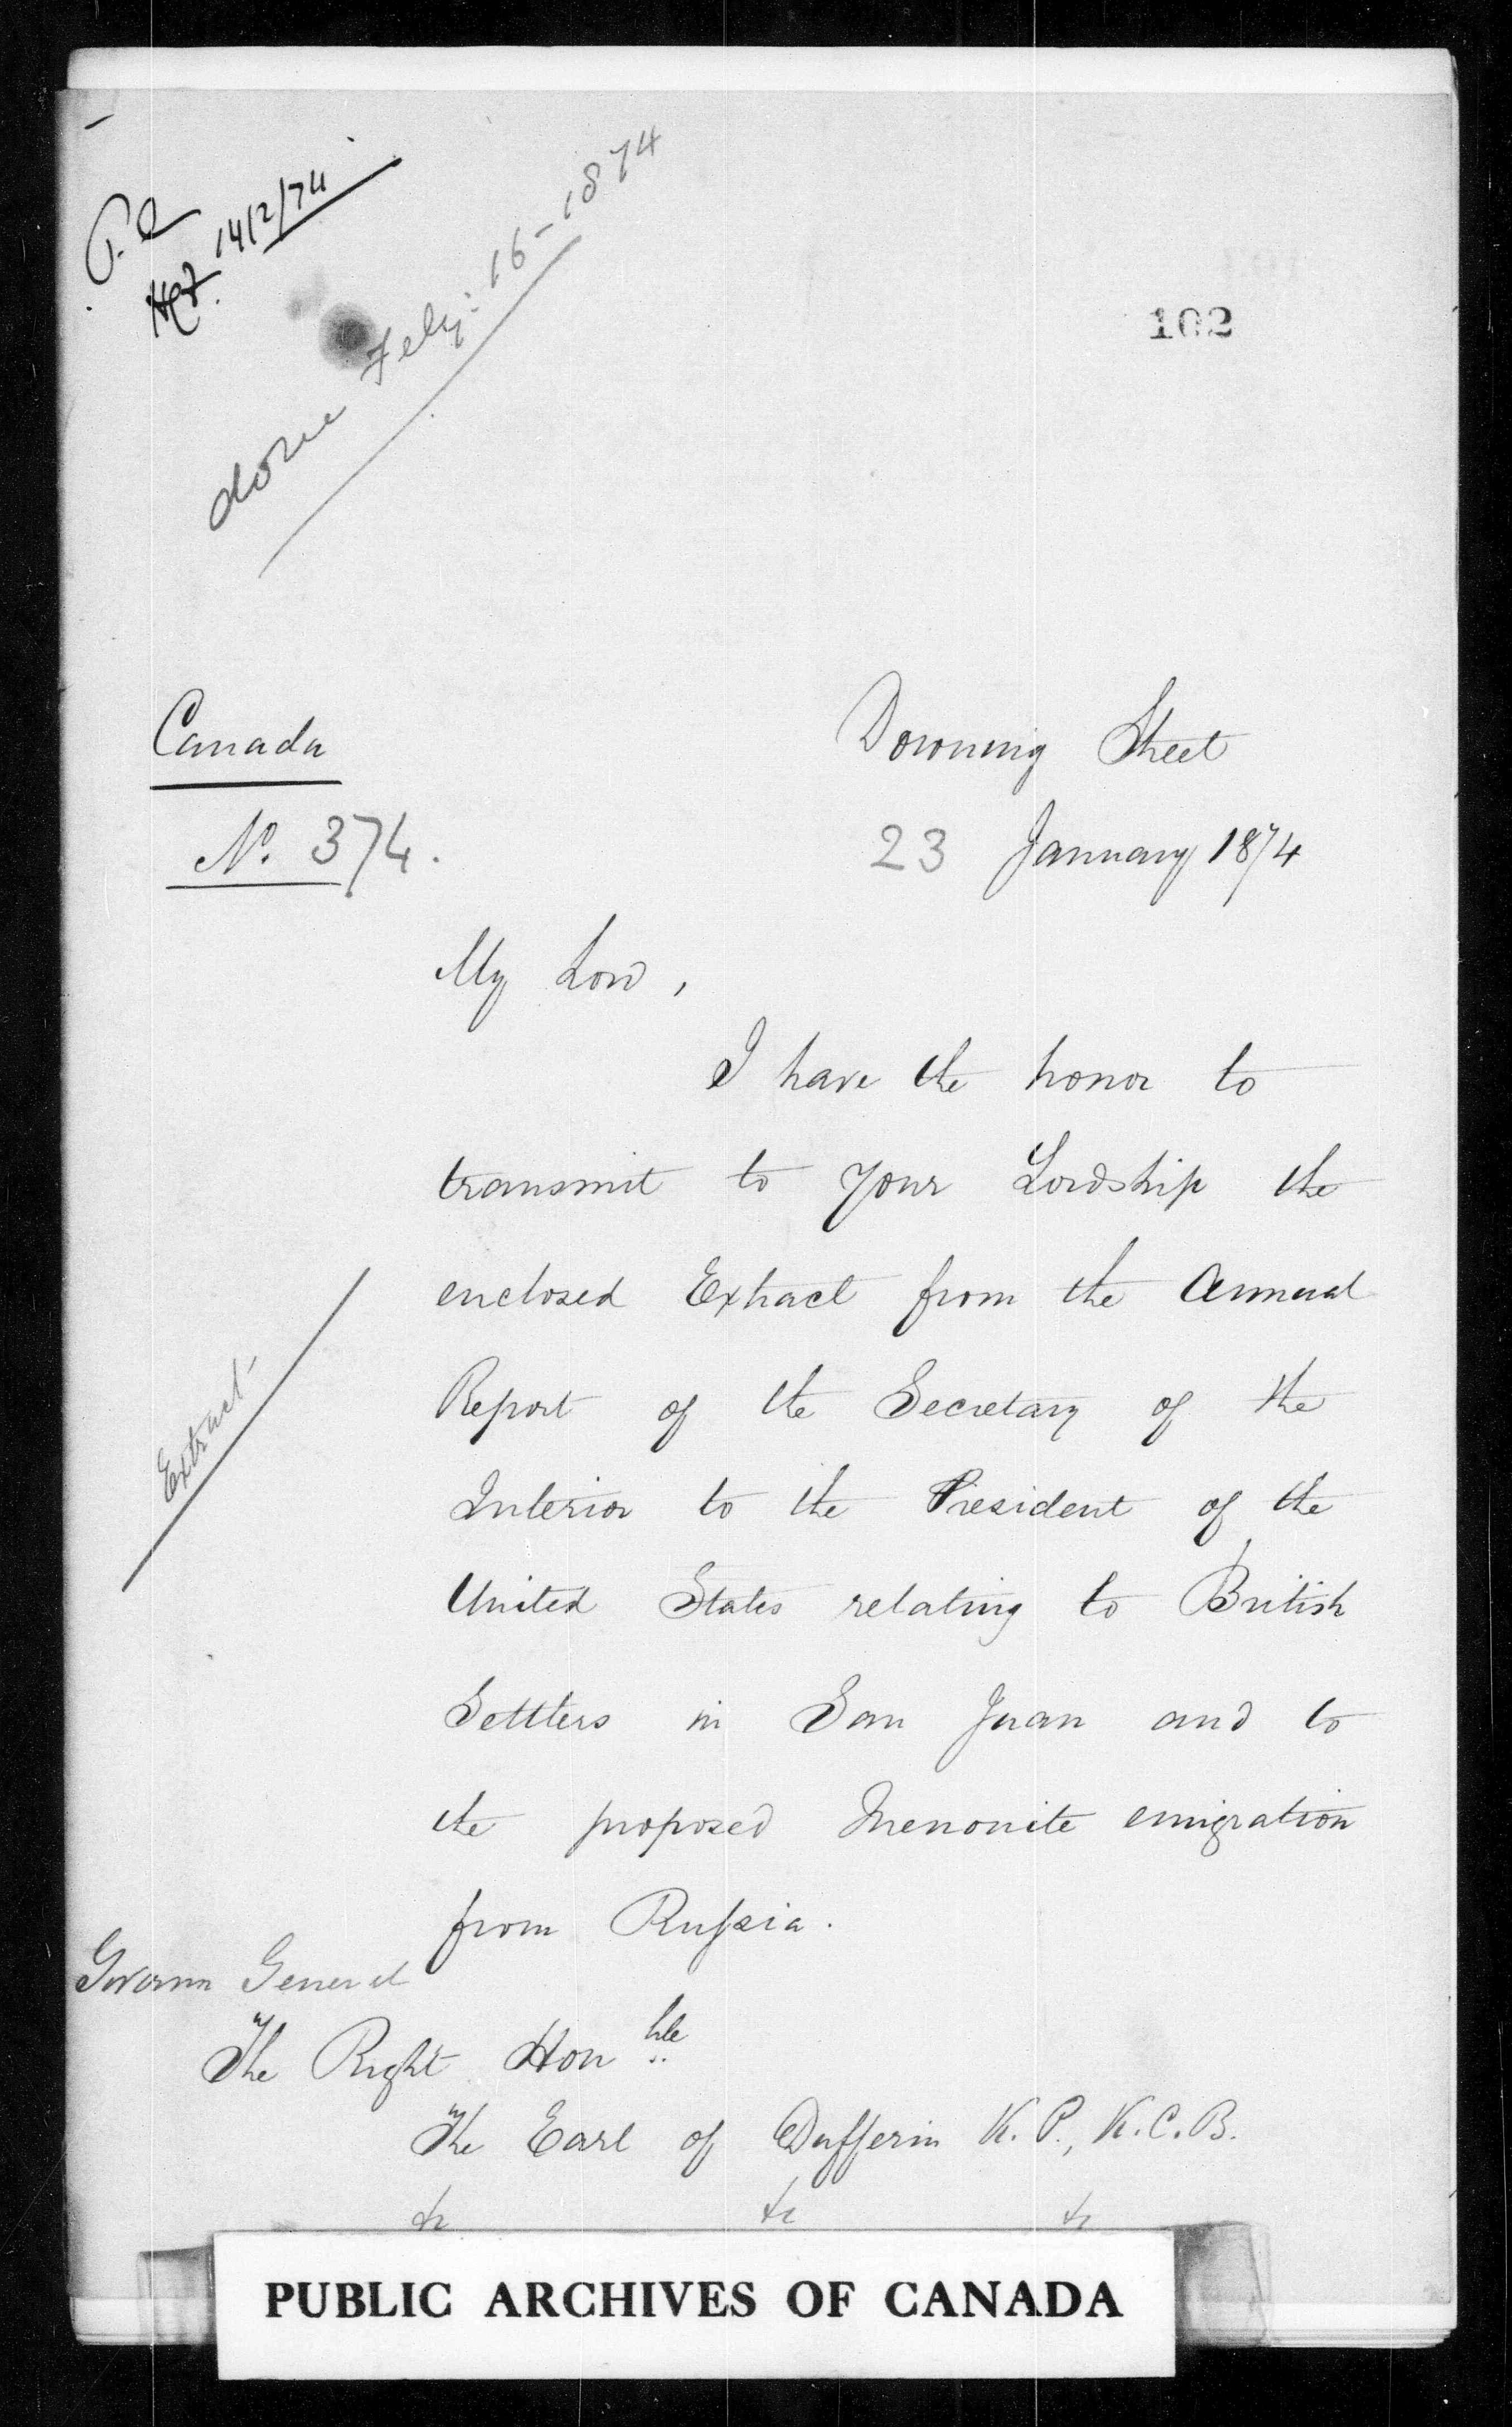 14/2/74
done Feby: 16-1874
102
Canada
No. 374.
Downing Street
23 January 1874
My Lord,
I have the honor to
transmit to Your Lordship the
enclosed Extract from the Annual
Report of the Secretary of the
Interior to the President of the
United States relating to British
Settlers in San Juan and to
the proposed Menonite emigration
from Russia.
Extract
Governor General
The Right Honble
The Earl of Dufferin K.P., K.C.B.
&c &c &c
PUBLIC ARCHIVES OF CANADA